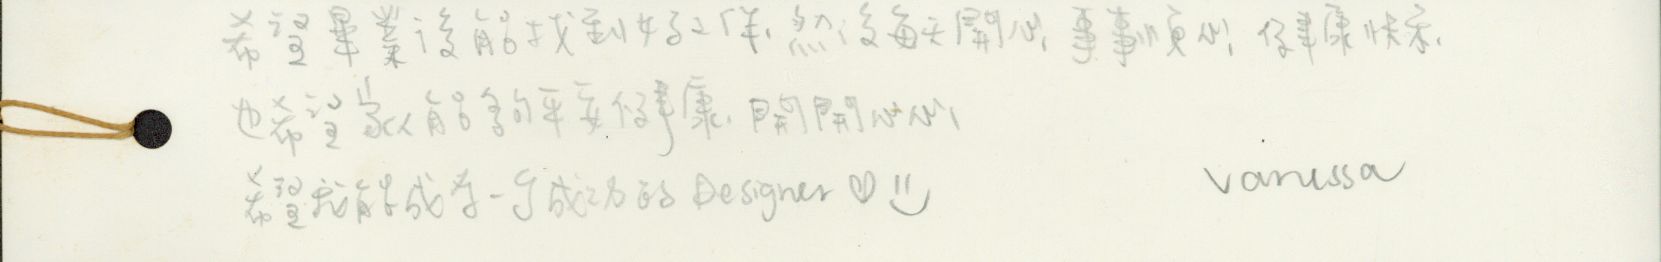 希望畢業後能找到好工作,然後每天開心,事事順心,健康快樂,
也希望家人能夠平安健康,開開心心,
希望我能成為一名成功的Designer♡ü
Vanessa